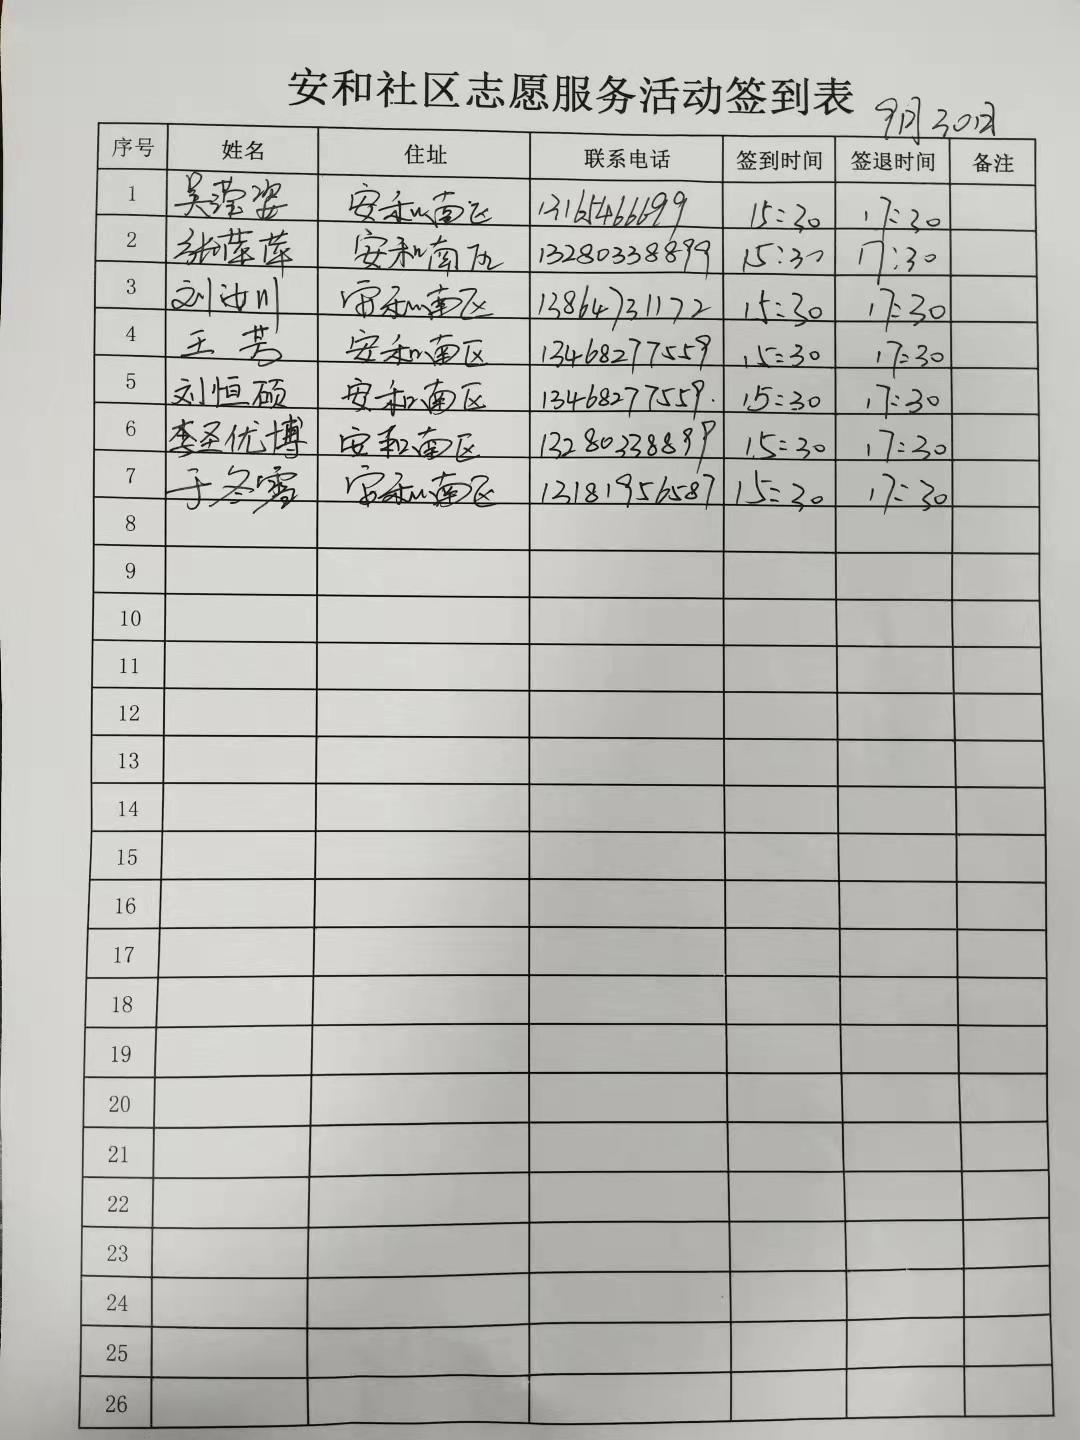 安和社区志愿服务活动签到表
9月30日
序号 姓名 住址 联系电话 签到时间 签退时间 备注
1 吴滢姿 安和南区 13165466699 15:30 17:30
2 张萍萍 安和南区 13280338899 15:30 17:30
3 刘汝川 安和南区 13864731172 15:30 17:30
4 王芳 安和南区 13468277559 15:30 17:30
5 刘恒硕 安和南区 13468277559. 15:30 17:30
6 李圣优博 安和南区 13280338899 15:30 17:30
7 于冬雪 安和南区 13181956587 15:30 17:30
8
9
10
11
12
13
14
15
16
17
18
19
20
21
22
23
24
25
26